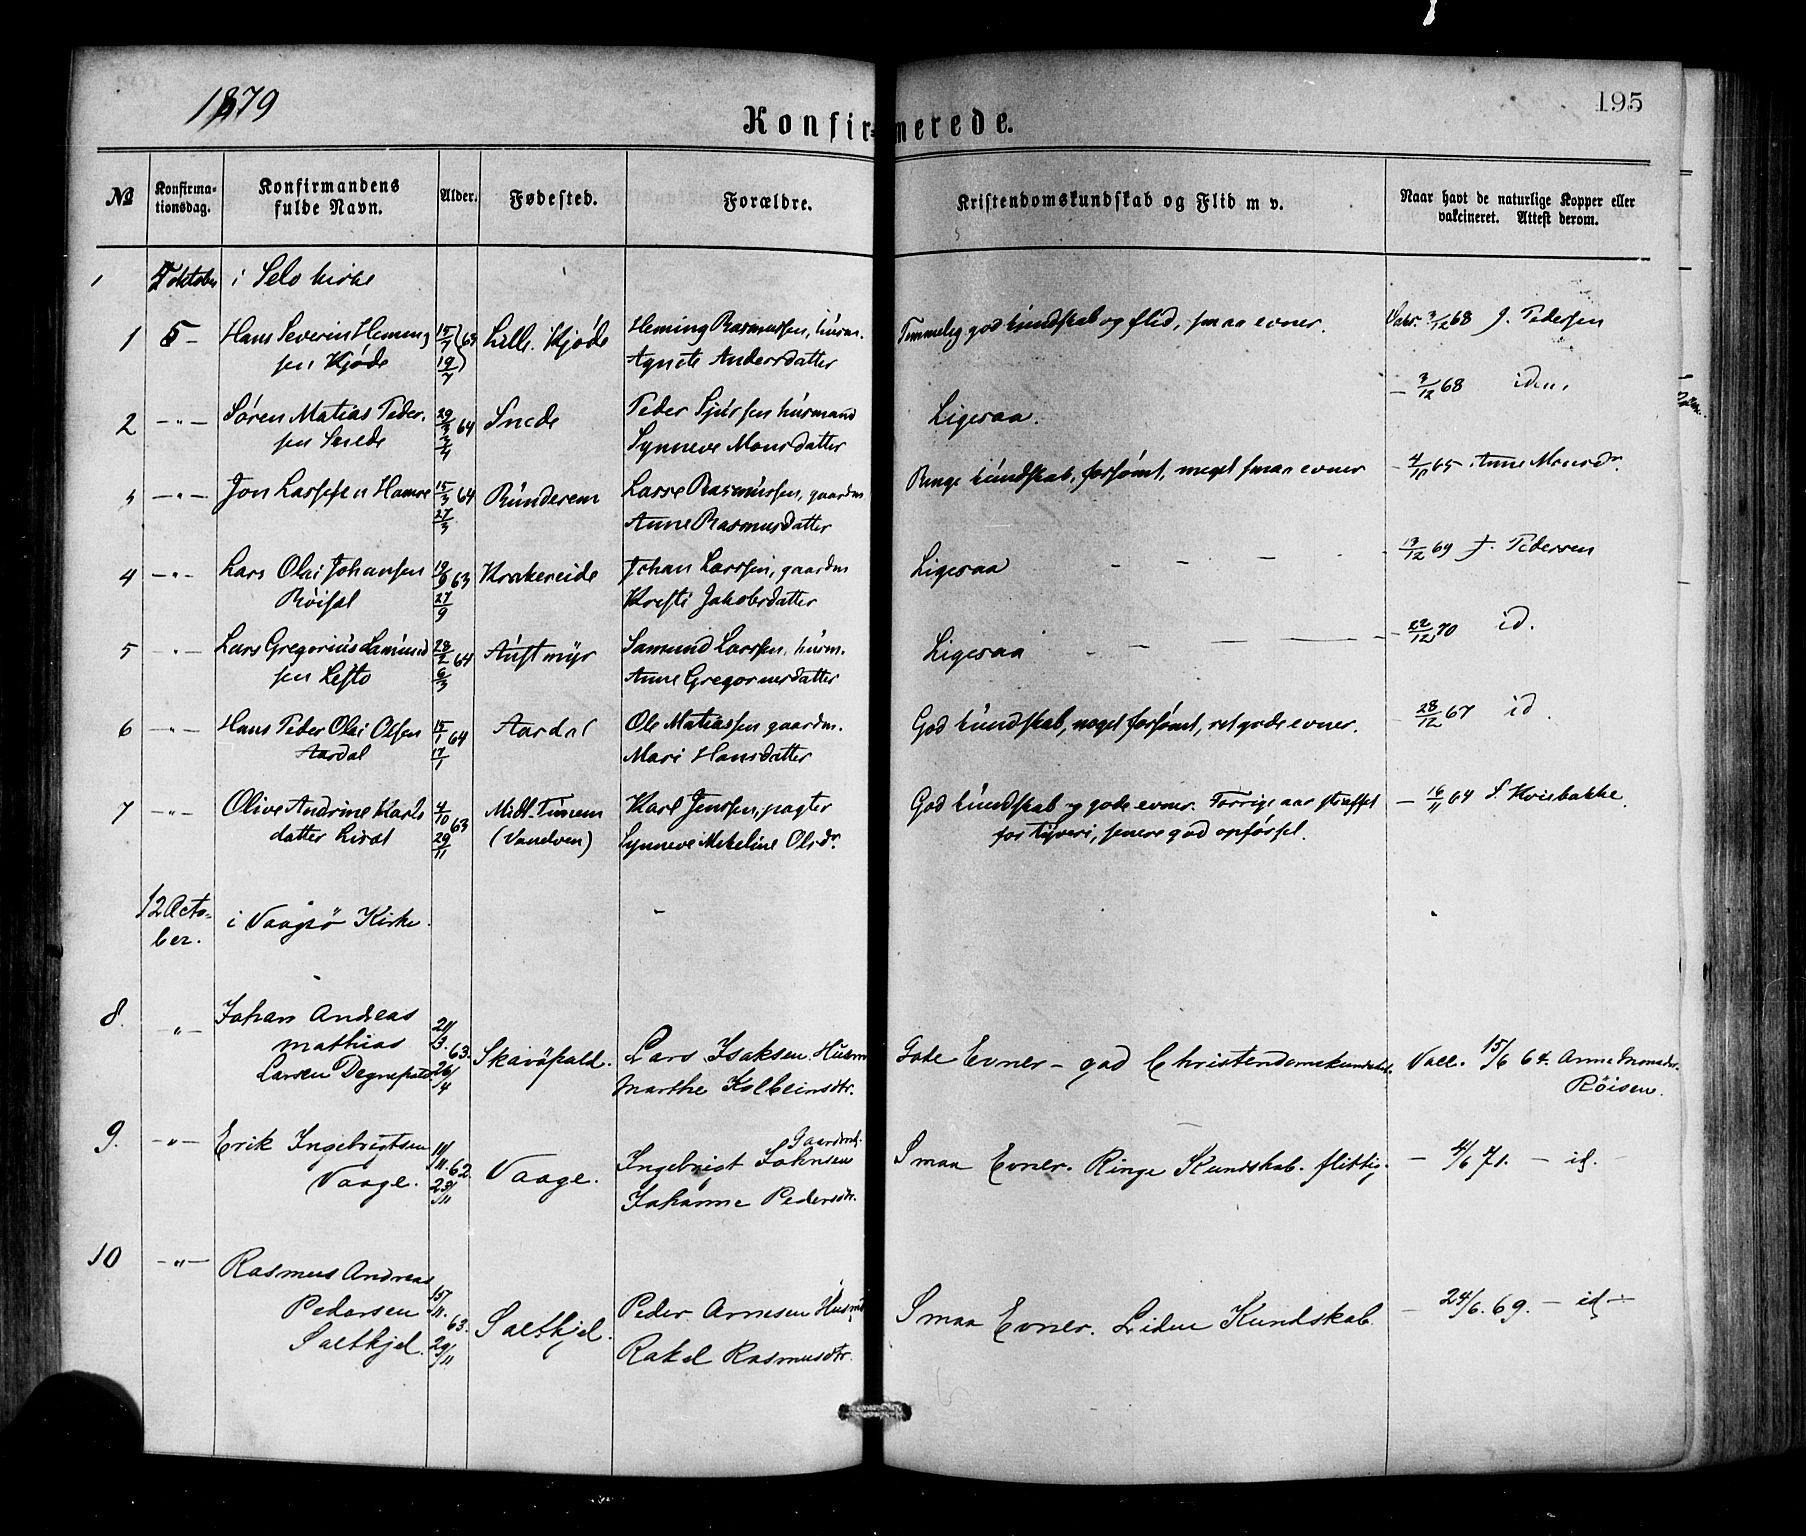 1879
195
Konfirmerede.
№ Konfirmationsdag. Konfirmandens fulde Navn. Alder. Fødested. Forældre. Kristendomskundskab og Flid m v. Naar havt de naturlige Kopper eller vakcineret. Attest derom.
i Selo kirke
1 5 - Hans Severin Hemings 15/7 63 Lille Kjøde Heming Rasmussen, husm. Temmelig god kundskab og flid, smaa evner. Vakc. 3/12 68 J. Pedersen
sen Kjøde 19/7 Agnete Andersdatter
2 - " - Søren Matias Peder- 29/3 64 Snede Peder Sjursen husmand Ligesaa. - 3/12 68 idem
sen Snede 3/4 Synneve Monsdatter
3 - " - Jon Lassesen Hamre 15/3 64 Runderem Lasse Rasmussen, gaardm Ringe kundskab, forsømt, meget smaa evner - 4/11 65 Anne Monsdr.
27/3 Anne Rasmusdatter
4 - " - Lars Olai Johansen 19/9 63 Krakereide Johan Larssen, gaardm Ligesaa - - - - 13/12 69 J. Pedersen
Røisal 27/9 Kristi Jakobsdatter
5 - " - Lars Gregorius Samund 28/2 64 Austmyr Samund Larssen, husm. Ligesaa - - - - 22/12 70 id.
sen Lefto 6/3 Anne Gregoriusdatter
6 - " - Hans Peder Olai Olsen 15/1 64 Aardal Ole Matiassen gaardm. God kundskab, noget forsømt, ret gode evner. - 28/12 67 id.
Aardal 17/1 Mari Hansdatter
7 - " - Olive Andrine Karls 4/10 63 Midt-Timem Karl Jenssen, pagter God kundskab og gode evner. Forrige aar straffet - 16/11 64 S. Kvisbakke.
datter 29/11 Synneve Mekeline Olsdr. for tyveri, senere god opførsel.
12 Octo-
ber. i Vaagsö Kirke.
8. " - Johan Andreas
mathias 63. Skavöpald. Lars Isaksen Husm Gode Evner - god Christendomskundskab. Vacc. 15/6 64. Anne Monsdr.
Larsen Degnepold 26/4 Marthe Kolbeinsdtr. Röisen.
9. - " - Erik Ingebrigtsen 11/11 62 Vaage. Ingebrigt Johnsen Gaardm. Smaa Evner. Ringe Kundskab. flittig. - 4/6 71. - id. -
Vaage. 23/11 Johanne Pedersdtr.
10 - " - Rasmus Andreas
Pedersen 15/11. 63. Saltkjel. Peder Arnesen Husm Smaa Evner. Liden Kundskab. - 24/6. 69. - id -
Saltkjel. 29/11 Rakel Rasmusdtr.